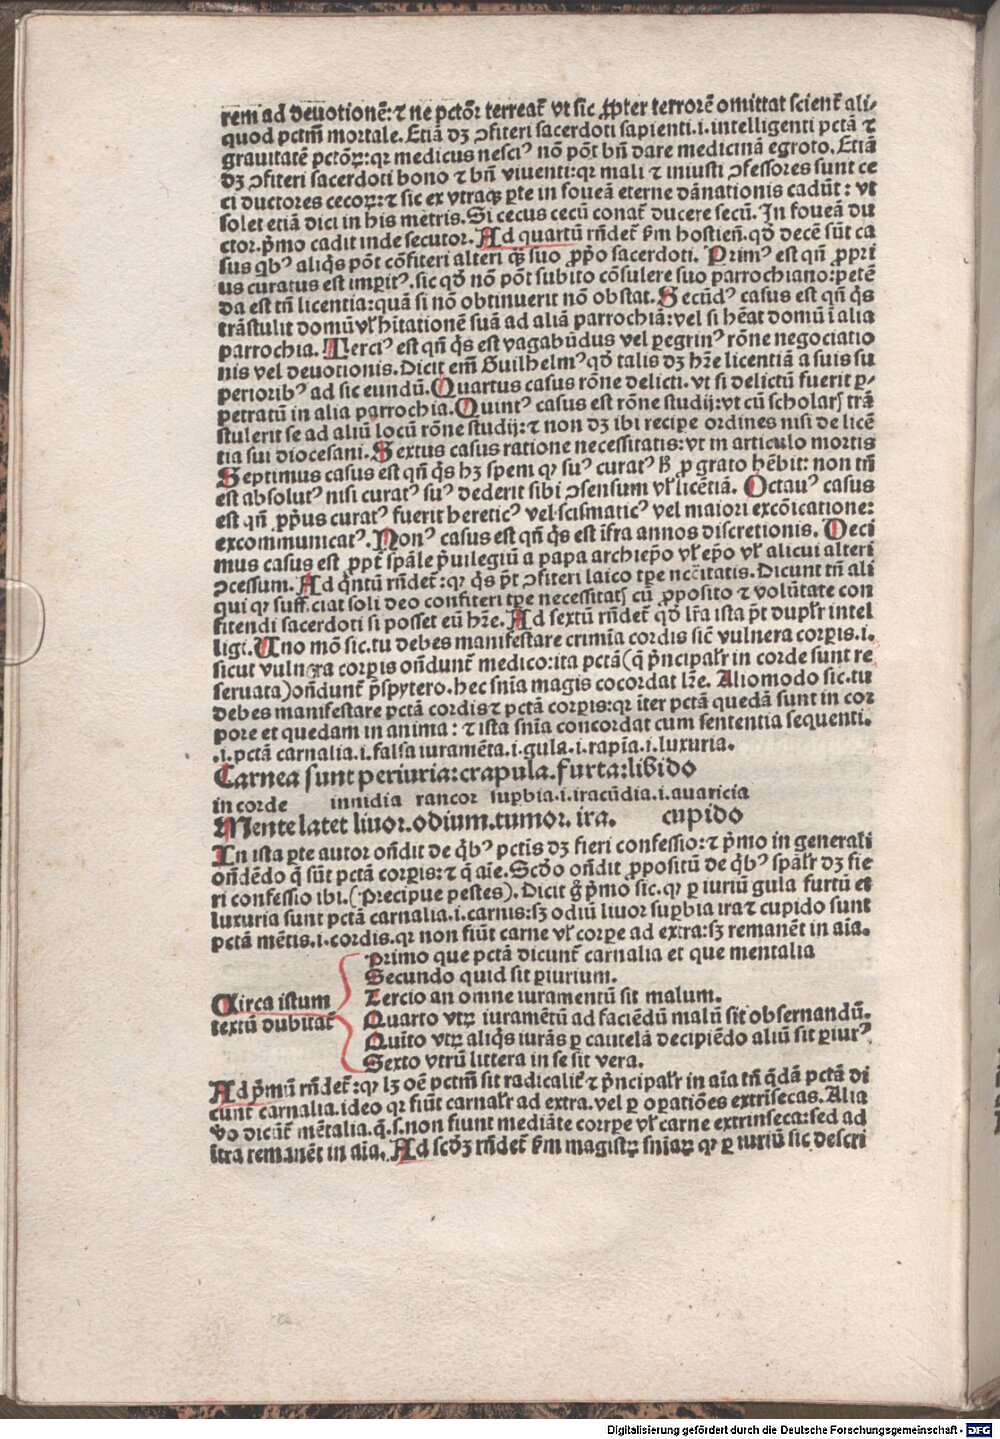 rem ad deuotionē: ⁊ ne pctōꝛ terreat᷑ vt sic ꝓpter terrorē omittat scient᷑ ali⸗
quod pctm̄ mortale. Etiā dꝫ ꝯfiteri sacerdoti sapienti .i. intelligenti pctā ⁊
grauitatē pctōꝝ: qꝛ medicus nesciꝰ nō pōt bn̄ dare medicinā egroto. Etiā
dꝫ ꝯfiteri sacerdoti bono ⁊ bn̄ viuenti: qꝛ mali ⁊ iniusti ꝯfessores sunt ce
ci ductores cecoꝝ: ⁊ sic ex vtraqꝫ ꝑte in foueā eterne dānationis cadūt: vt
solet etiā dici in his metris. Si cecus cecū conat᷑ ducere secū. In foueā du
ctor. pͥmo cadit inde secutor. Ad quartū rn̄det᷑ ẜm hostien̄. qd̓ decē sūt ca
sus qͥbꝰ aliqͥs pōt cōfiteri alteri qͣꝫ suo ꝓpͥo sacerdoti. Primꝰ est qn̄ ꝓpri
us curatus est imꝑitꝰ. sic qd̓ nō pōt subito cōsulere suo parrochiano: petē
da est tn̄ licentia: quā si nō obtinuerit nō obstat. Secūdꝰ casus est qn̄ qͥs
trāstulit domū vl̓ hītationē suā ad aliā parrochiā: vel si hēat domū ī alia
parrochia. Terciꝰ est qn̄ qͥs est vagabūdus vel ꝑegrinꝰ rōne negociatio
nis vel deuotionis. Dicit em̄ Guilhelmꝰ qd̓ talis dꝫ hr̄e licentiā a suis su
perioribꝰ ad sic eundū. Quartus casus rōne delicti. vt si delictū fuerit ꝑ⸗
petratū in alia parrochia. Quintꝰ casus est rōne studij: vt cū scholarꝭ trā
stulerit se ad aliū locū rōne studij: ⁊ non dꝫ ibi recipe ordines nisi de licē
tia sui diocesani. Sextus casus ratione necessitatis: vt in articulo mortis
Septimus casus est qn̄ qͥs hꝫ spem ꝙ suꝰ curatꝰ ꝓ grato hēbit: non tn̄
est absolutꝰ nisi curatꝰ suꝰ dederit sibi ꝯsensum vl̓ licētiā. Octauꝰ casus
est qn̄ ꝓpͥus curatꝰ fuerit hereticꝰ vel scismaticꝰ vel maiori excōicatione:
excommunicatꝰ. Nonꝰ casus est qn̄ qͥs est īfra annos discretionis. Deci
mus casus est ꝓpt᷑ spāle pͥuilegiū a papa archiep̄o vl̓ ep̄o vl̓ alicui alteri
ꝯcessum. Ad qͥntū rn̄det᷑: ꝙ qͥs pt̄ ꝯfiteri laico tꝑe nccītatis. Dicunt tn̄ ali
qui ꝙ sufficiat soli deo confiteri tꝑe necessitatꝭ cū ꝓposito ⁊ volūtate con
fitendi sacerdoti si posset eū hr̄e. Ad sextū rn̄det᷑ qd̓ lr̄a ista pt̄ duplr̓ intel
ligi. Uno mō sic. tu debes manifestare crimīa cordis sic̄ vulnera corꝑis .i.
sicut vulnera corꝑis on̄dunt᷑ medico: ita pctā (q̄ pͥncipalr̓ in corde sunt re
seruata) on̄dunt᷑ pͥspytero. hec sn̄ia magis cocordat lr̄e. Aliomodo sic. tu
debes manifestare pctā cordis ⁊ pctā corꝑis: qꝛ iter pctā quedā sunt in cor
pore et quedam in anima: ⁊ ista sn̄ia concordat cum sententia sequenti.
.i. pctā carnalia .i. falsa iuramēta .i. gula .i. rapīa .i. luxuria.
Carnea sunt periuria: crapula. furta: libido
in corde inuidia rancor suꝑbia .i. iracūdia .i. auaricia
Mente latet liuor. odium. tumor. ira. cupido
In ista ꝑte autor on̄dit de qͥbꝰ pctis dꝫ fieri confessio: ⁊ pͥmo in generali
on̄dēdo q̄ sūt pctā corꝑis: ⁊ q̄ aīe. Scd̓o on̄dit ꝓpositū de qͥbꝰ spālr̓ dꝫ fie
ri confessio ibi. (Precipue pestes). Dicit gͦ pͥmo sic. ꝙ ꝑ iuriū gula furtū et
luxuria sunt pctā carnalia .i. carnis: sꝫ odiū liuor suꝑbia ira ⁊ cupido sunt
pctā mētis .i. cordis. qꝛ non fiūt carne vl̓ corꝑe ad extra: sꝫ remanēt in aīa.
Circa istum
textū dubitat᷑
Primo que pctā dicunt᷑ carnalia et que mentalia
Secundo quid sit ꝑiurium.
Tercio an omne iuramentū sit malum.
Quarto vtꝝ iuramētū ad faciēdū malū sit obseruandū.
Quīto vtꝝ aliqͥs iurās ꝑ cautelā decipiēdo aliū sit ꝑiurꝰ
Sexto vtrū littera in se sit vera.
Ad pͥmū rn̄det᷑: ꝙ lꝫ oē pctm̄ sit radicalit᷑ ⁊ pͥncipalr̓ in aīa tn̄ qͥdā pctā di
cunt᷑ carnalia. ideo qꝛ fiūt carnalr̓ ad extra. vel ꝑ oꝑatiōes extrīsecas. Alia
v̓o dicūt᷑ mētalia. q̄ .s. non fiunt mediāte corꝑe vl̓ carne extrinseca: sed ad
ītra remanēt in aīa. Ad scd̓ꝫ rn̄det᷑ ẜm magistꝝ sn̄iaꝝ ꝙ ꝑ iuriū sic descri
Digitalisierung gefördert durch die Deutsche Forschungsgemeinschaft - DFG